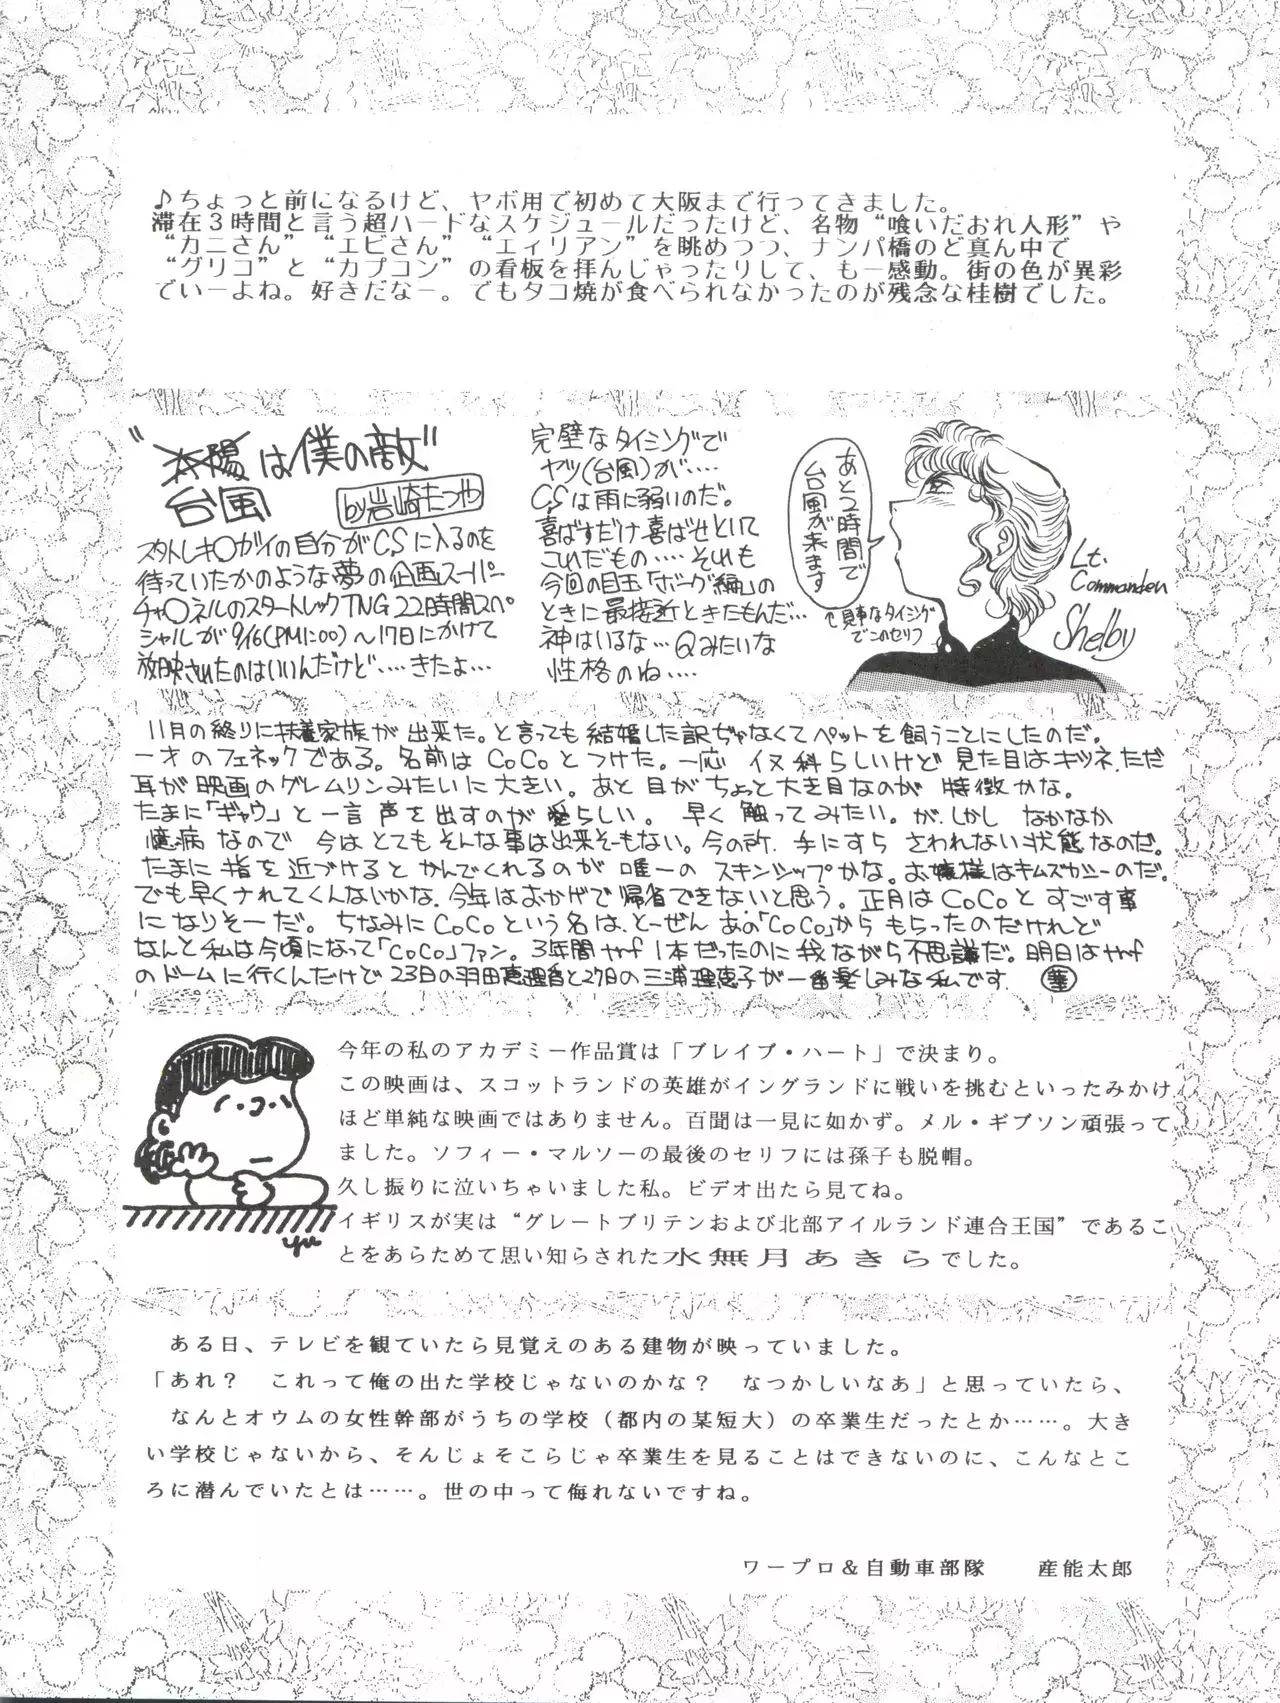 ♪ちょっと前になるけど、ヤボ用で初めて大阪まで行ってきました。
滞在３時間と言う超ハードなスケジュールだったけど、名物“喰いだおれ人形”や
“カニさん”“エビさん”“エィリアン”を眺めつつ、ナンパ橋のど真ん中で
“グリコ”と“カプコン”の看板を拝んじゃったりして、も一感動。街の色が異彩
でいーよね。好きだなー。でもタコ焼が食べられなかったのが残念な桂樹でした。
“太陽は僕の敵”
台風
by岩崎たつや
スタトレキ〇ガイの自分がCSに入るのを
待っていたかのような夢の企画スーパー
チャ〇ネルのスタートレックTNG22時間スペ
シャルが9/16(PM1:00)〜17日にかけて
放映されたのはいいんだけど‥‥きたよ…
完璧なタイミングで
ヤツ(台風)が‥‥
CSは雨に弱いのだ。
喜ばすだけ喜ばせといて
これだもの‥‥それも
今回の目玉「ボーグ編」の
ときに最接近ときたもんだ…
神はいるな…Qみたいな
性格のね‥‥
あと2時間で
台風が来ます
↑見事なタイミング
でこのセリフ
Lt.
Commander
Shelby
11月の終りに扶養家族が出来た。と言っても結婚した訳ぢゃなくてペットを飼うことにしたのだ。
一才のフェネックである。名前はCoCoとつけた。一応イヌ科らしいけど見た目はキツネ、ただ
耳が映画のグレムリンみたいに大きい。あと目がちょっと大き目なのが特徴かな。
たまに「ギャウ」と一言声を出すのが愛らしい。早く触ってみたい。が、しかしなかなか
憶病なので今はとてもそんな事は出来そーもない。今の所、手にすらさわれない状態なのだ。
たまに指を近づけるとかんでくれるのが唯一のスキンシップかな。お嬢様はキムズカシーのだ。
でも早くナれてくんないかな。今年はおかげで帰省できないと思う。正月はCoCoとすごす事
になりそーだ。ちなみにCoCoという名は、とーぜんあの「CoCo」からもらったのだけれど
なんと私は今頃になって「CoCo」ファン。3年間ribbon1本だったのに我ながら不思議だ。明日は
のドームに行くんだけど23日の羽田恵理香と27日の三浦理恵子が一番楽しみな私です。
yu
今年の私のアカデミー作品賞は「ブレイブ・ハート」で決まり。
この映画は、スコットランドの英雄がイングランドに戦いを挑むといったみかけ
ほど単純な映画ではありません。百聞は一見に如かず。メル・ギブソン頑張って
ました。ソフィー・マルソーの最後のセリフには孫子も脱帽。
久し振りに泣いちゃいました私。ビデオ出たら見てね。
イギリスが実は“グレートブリテンおよび北部アイルランド連合王国”であるこ
とをあらためて思い知らされた水無月あきらでした。
ある日、テレビを観ていたら見覚えのある建物が映っていました。
「あれ？　これって俺の出た学校じゃないのかな？　なつかしいなあ」と思っていたら、
なんとオウムの女性幹部がうちの学校（都内の某短大）の卒業生だったとか……。大き
い学校じゃないから、そんじょそこらじゃ卒業生を見ることはできないのに、こんなとこ
ろに潜んでいたとは……。世の中って侮れないですね。
ワープロ＆自動車部隊　　産能太郎